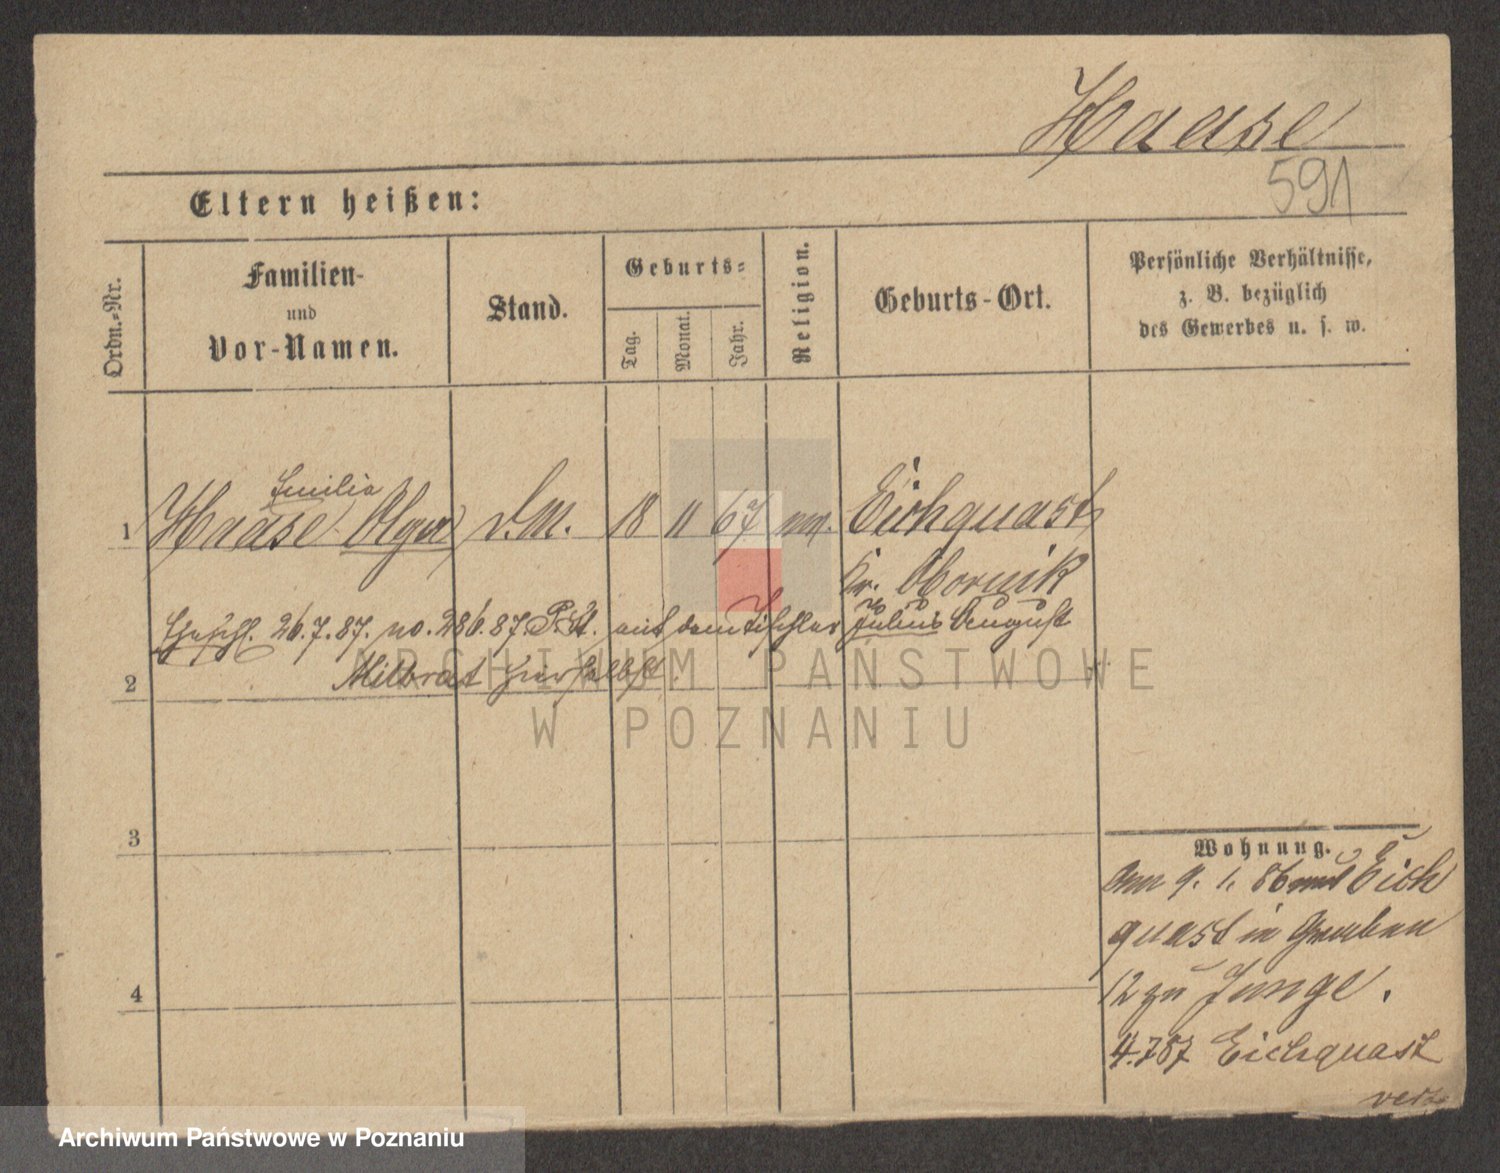 Haase
591
Eltern heißen:
Ordn.-Nr.
Familien-
und
Vor-Namen.
Stand.
Geburts-
Tag.
Monat.
Jahr.
Religion.
Geburts-Ort.
Persönliche Verhältnisse,
z. B. bezüglich
des Gewerbes u. s. w.
Emilie
1 Haase Olga D.M. 18 11 67 Eichquast
Kr. Obornik
26.7.87. no. 286.87. P. St. mit dem Tischler Julius August
2 Milbrat hierselbst.
3
4
Wohnung.
Am 9. 1. 86 aus Eich
quast in Graben
12 zu Junge.
4.787 Eichquast
verz
ARCHIWUM PAŃSTWOWE
W POZNANIU
Archiwum Państwowe w Poznaniu